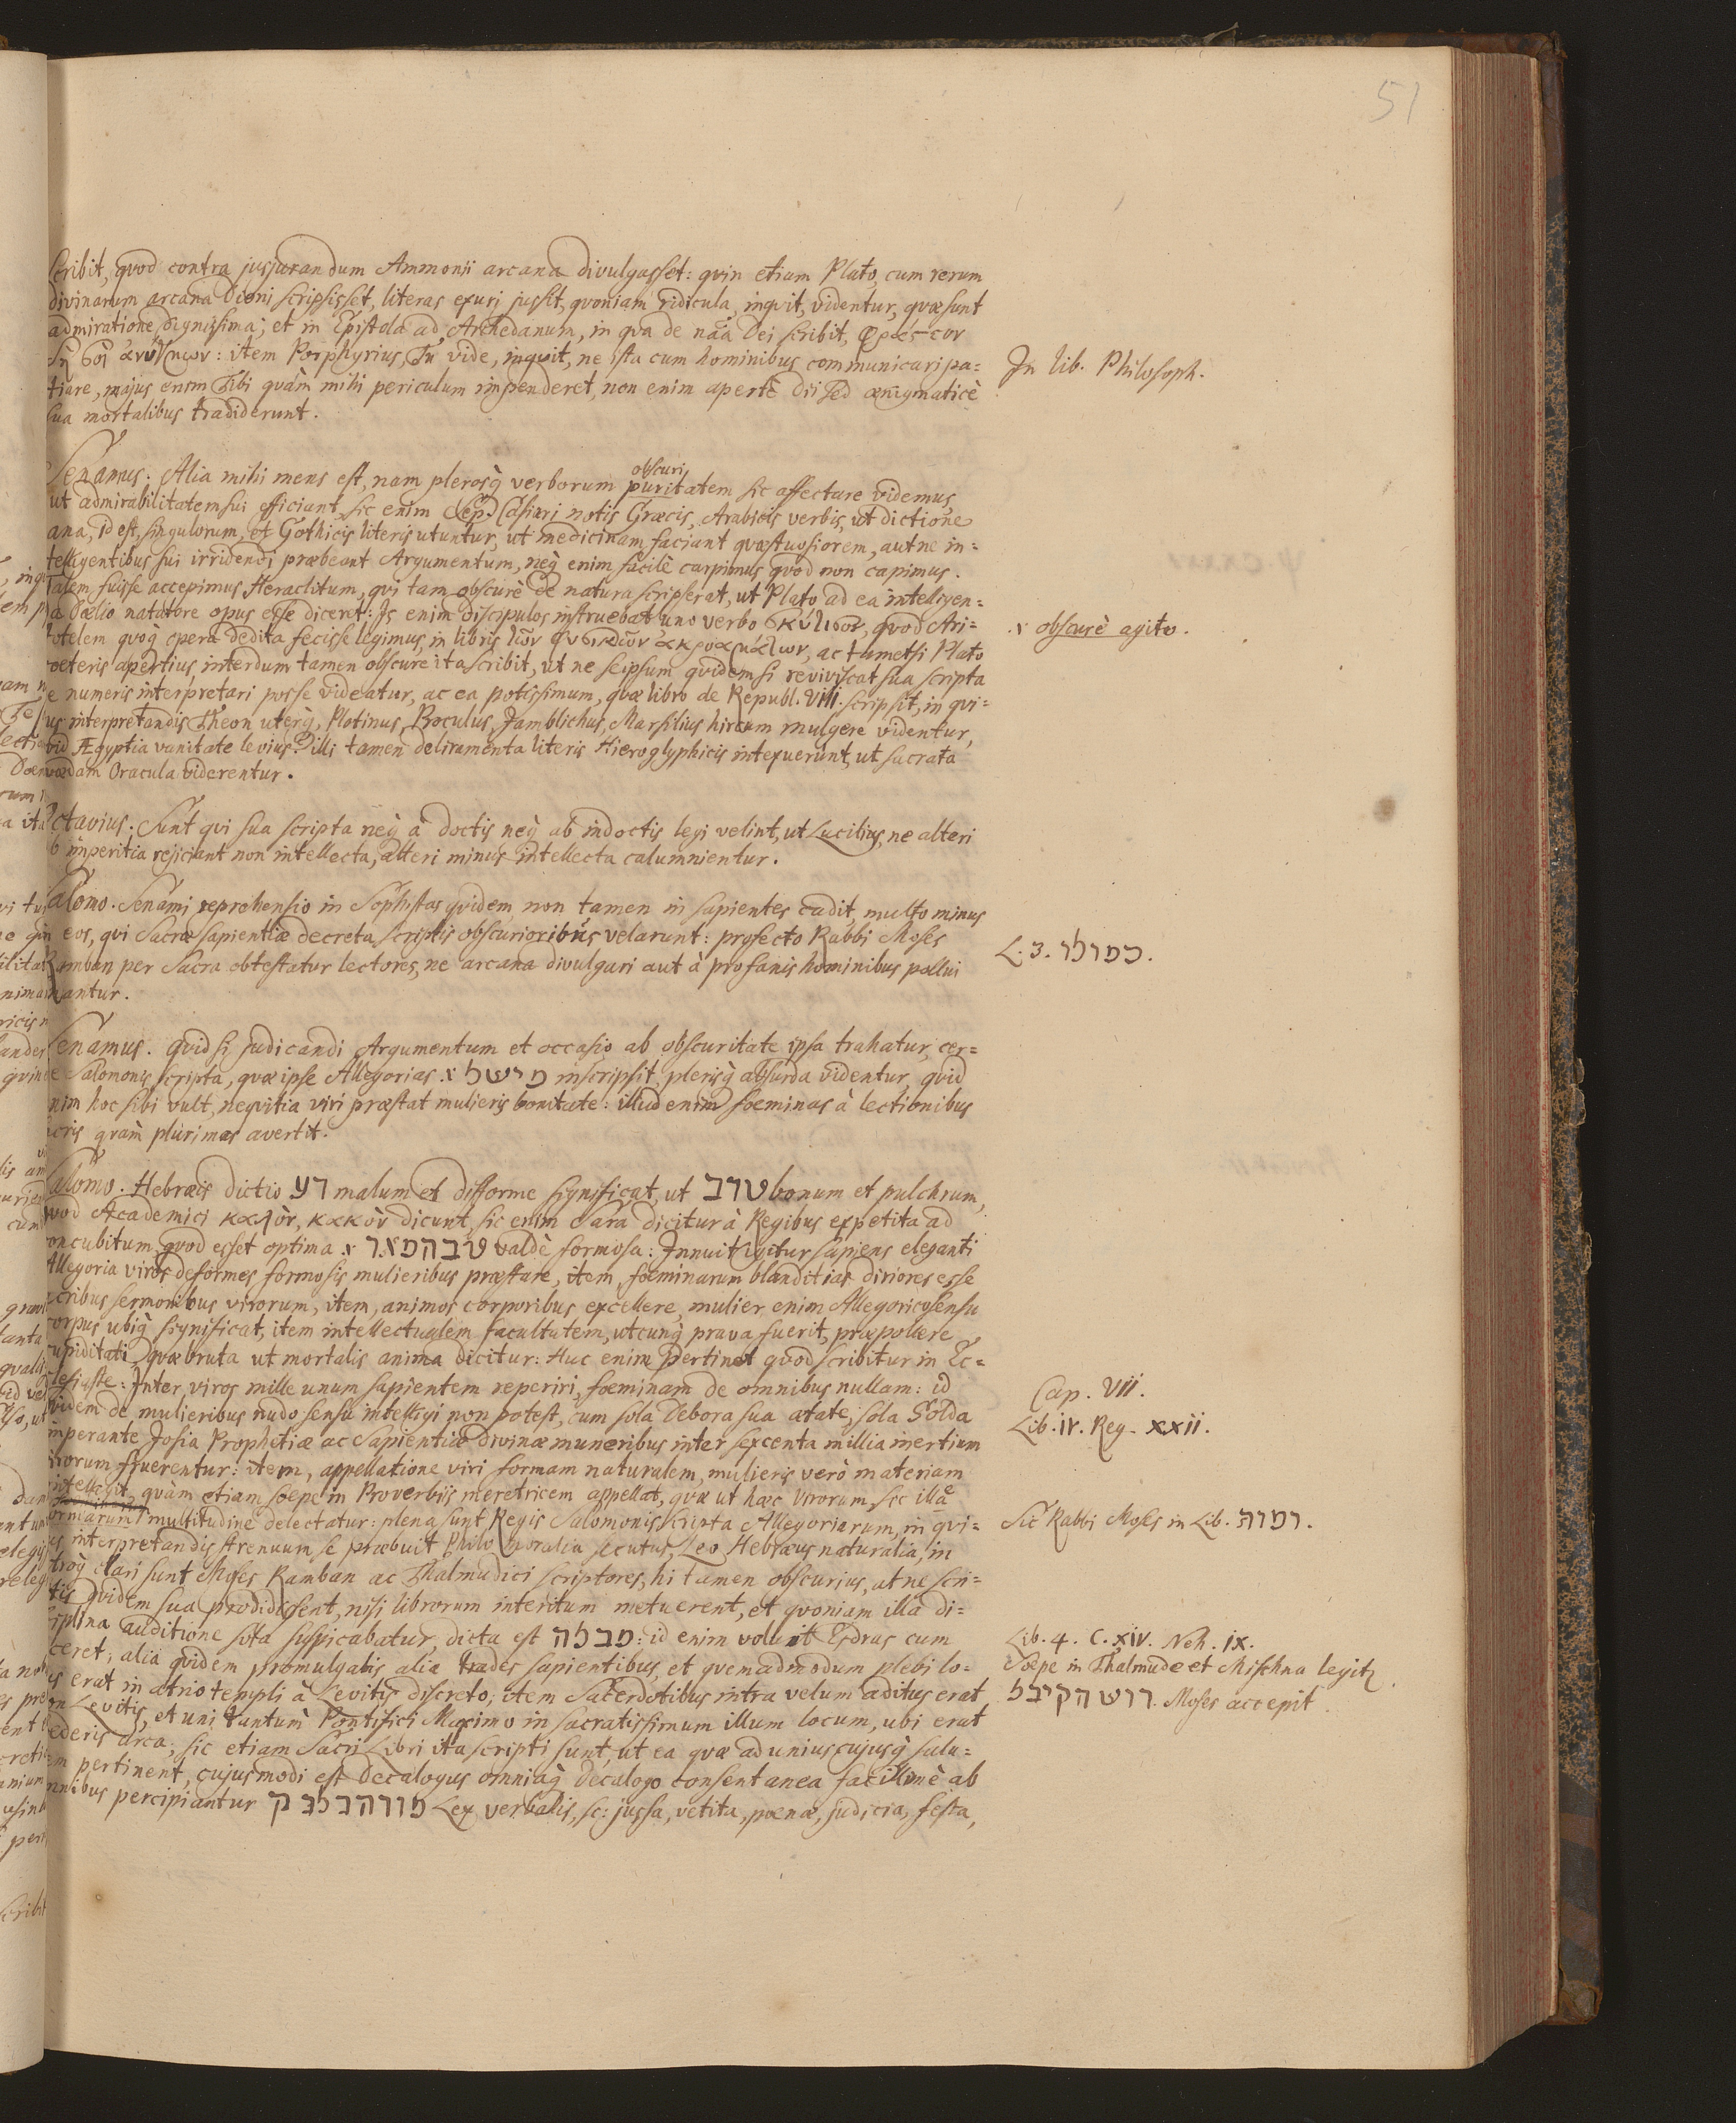 51
scribit, quod contra jusjurandum Ammonii arcana divulgasset: quin etiam Plato, cum rerum
divinarum arcana Dioni scripsisset, literas exuri jussit, quoniam ridicula, inquit, videntur, quæ sunt
admiratione dignissima; et in Epistola ad Archedanum, in qua de nāa Dei scribit,
item Porphyrius, Tu vide, inquit, ne ista cum hominibus communicari pa=
tiare, majus enim tibi quàm mihi periculum impenderet, non enim apertè Dii sed ænigmaticè
sua mortalibus tradiderunt.
In lib. Philosoph.
Senamus. Alia mihi mens est, nam plerosq; verborum puritatem sic affectare videmus,
obscuri
ut admirabilitatem sui efficiant, sic enim notis Græcis, Arabicis verbis, ut dictione
ana, id est, singulorum, et Gothicis literis utuntur, ut medicinam faciant quæstuosiorem, aut ne in=
telligentibus sui irridendi præbeant Argumentum, neq; enim facilè carpimus quod non capimus.
Talem fuisse accepimus Heraclitum, qui tam obscurè de natura scripserat, ut Plato ad ea intelligen=
da Dælio natatore opus esse diceret: Is enim discipulos instruebat uno verbo σκότισον, quod Ari=
.r obscurè agito.
totelem quoq; opera dedita fecisse legimus, in libris τῶν φυσικῶν ἀκροαμάτων, ac tametsi Plato
cæteris apertius, interdum tamen obscure ita scribit, ut ne seipsum quidem si reviviscat sua scripta
e numeris interpretari posse videatur, ac ea potissimum, quæ libro de Republ. VIII. scripsit, in qui=
us interpretandis Theon uterq;, Plotinus, Proculus, Jamblichus, Marsilius hircum mulgere videntur,
vid Ægyptia vanitate levius? illi tamen deliramenta literis Hieroglyphicis intexuerunt, ut sacrata
vædam Oracula viderentur.
ctavius. Sunt qui sua scripta neq; à doctis neq; ab indoctis legi velint, ut Lucilius, ne alteri
b imperitia rejiciant non intellecta, alteri minus intellecta calumnientur.
alomo. Senami reprehensio in Sophistas quidem, non tamen in sapientes cadit, multo minus
eos, qui Sacræ sapientiæ decreta scriptis obscurioribus velarunt: profecto Rabbi Moses
Ramban per Sacra obtestatur lectores, ne arcana divulgari aut à profanis hominibus pollui
antur.
L. 3.
Senamus. Quid si judicandi Argumentum et occasio ab obscuritate ipsa trahatur, cer=
e Salomonis scripta, quæ ipse Allegorias .r מישל inscripsit, plerisq; absurda videntur, quid
nim hoc sibi vult, nequitia viri præstat mulieris bonitate: illud enim fœminas à lectionibus
cris quàm plurimas avertit.
Salomo. Hebræis dictio רע malum et difforme significat, ut טוב bonum et pulchrum,
vod Academici καλὸν, κακὸν dicunt, sic enim Sara dicitur à Regibus expetita ad
oncubitum, quod esset optima .r valdè formosa: Innuit igitur sapiens eleganti
Allegoria viros deformes formosis mulieribus præstare, item, fœminarum blanditias diriores esse
cribus sermonibus virorum, item, animos corporibus excellere, mulier enim Allegorico sensu
orpus ubiq; significat, item intellectualem facultatem, utcunq; prava fuerit, præpollere
upiditati quæ bruta ut mortalis anima dicitur: Huc enim pertinet quod scribitur in Ec=
lesiaste: Inter viros mille unum sapientem reperiri, fœminam de omnibus nullam: id
Cap. VII.
videm de mulieribus nudo sensu intelligi non potest, cum sola Debora sua ætate, sola Solda
Lib. IV. Reg. XXII.
mperante Josia Prophetiæ ac Sapientiæ divinæ muneribus inter sexcenta millia inertium
irorum fruerentur: item, appellatione viri formam naturalem, mulieris verò materiam
ntelligit, quàm etiam sæpe in Proverbiis meretricem appellat, quæ ut hæc virorum sic illa
ormarum multitudine delectatur: plena sunt Regis Salomonis scripta Allegoriarum, in qui=
Sic Rabbi Moses in Lib.
us interpretandis strenuum se præbuit Philo moralia secutus, Leo Hebræus naturalia, in
troq; clari sunt Moses Ramban ac Thalmudici scriptores, hi tamen obscurius, at ne scri=
tis quidem sua prodidissent, nisi librorum interitum metuerent, et quoniam illa di=
iplina auditione sola suspicabatur, dicta est : id enim voluit Esdras cum
Lib. 4. C. XIV. Neh. IX.
ceret; alia quidem promulgabis, alia trades sapientibus, et quemadmodum plebi lo=
Sæpe in Thalmude et Mischna legit
us erat in atrio templi à Levitis discreto; item Sacerdotibus intra velum aditus erat
Moses accepit.
on Levitis, et uni tantum Pontifici Maximo in sacratissimum illum locum, ubi erat
œderis arca; sic etiam Sacri Libri ita scripti sunt, ut ea quæ ad uniuscujusq; salu=
em pertinent, cujusmodi est Decalogus omniaq; Decalogo consentanea facillimè ab
mnibus percipiantur Lex verbalis, sc: jussa, vetita, pœnæ, judicia, festa,